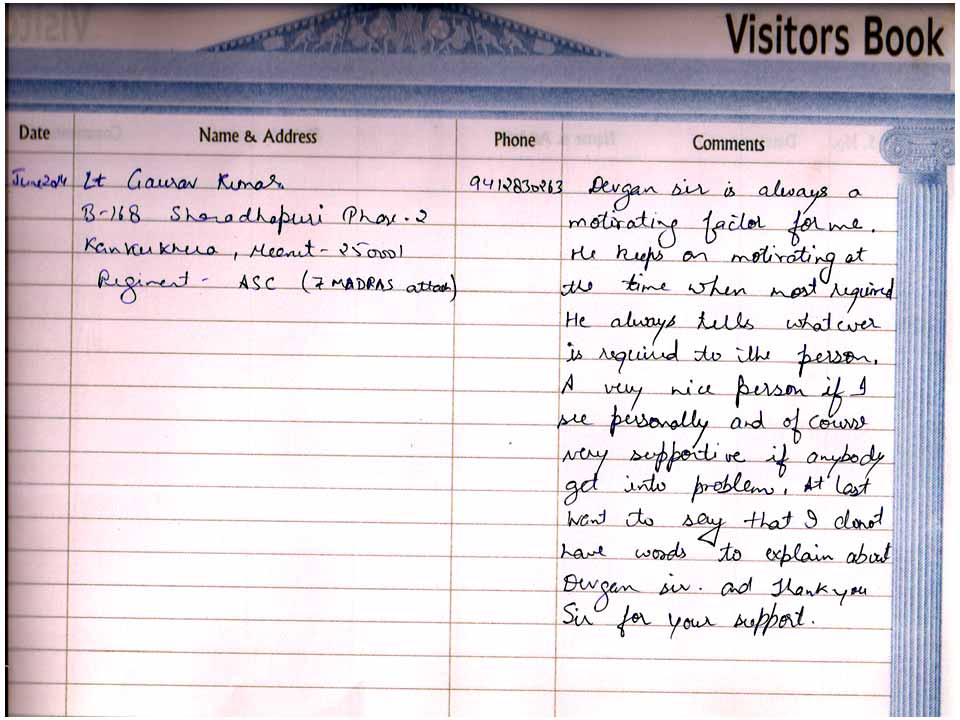 Visitors Book
Date Name & Address Phone Comments
June 2014 Lt Gaurav Kumar 9412830263 Devgan sir is always a
B-168 Sharadhapuri Phase-2 motivating factor for me.
Kankerkhera, Meerut-250001 He keeps on motivating at
Regiment- ASC (7 MADRAS attach) the time when most required
He always tells whatever
is required to the person.
A very nice person if I
see personally and of course
very supportive if anybody
get into problem. At last
want to say that I donot
have words to explain about
Devgan sir. and Thank you
Sir for your support.